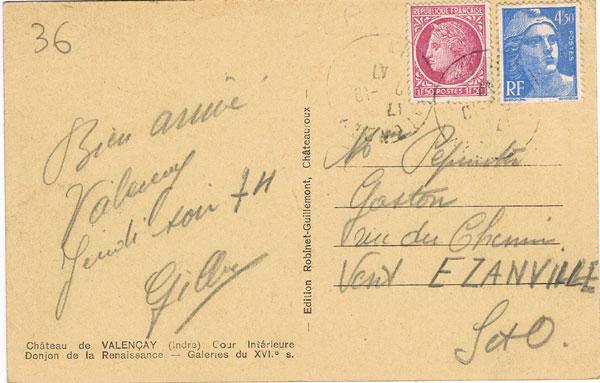 36
RÉPUBLIQUE FRANÇAISE
1F50 POSTES 1F50
4F50
POSTES
RF
Bien arrivé
Valençay
Jeudi soir 7H
Château de VALENÇAY (Indre) Cour Intérieure
Donjon de la Renaissance — Galeries du XVI.e s.
— Edition Robinet-Guillemont, Châteauroux —
Gaston
rue du Chemin
Vert EZANVILLE
S&O.